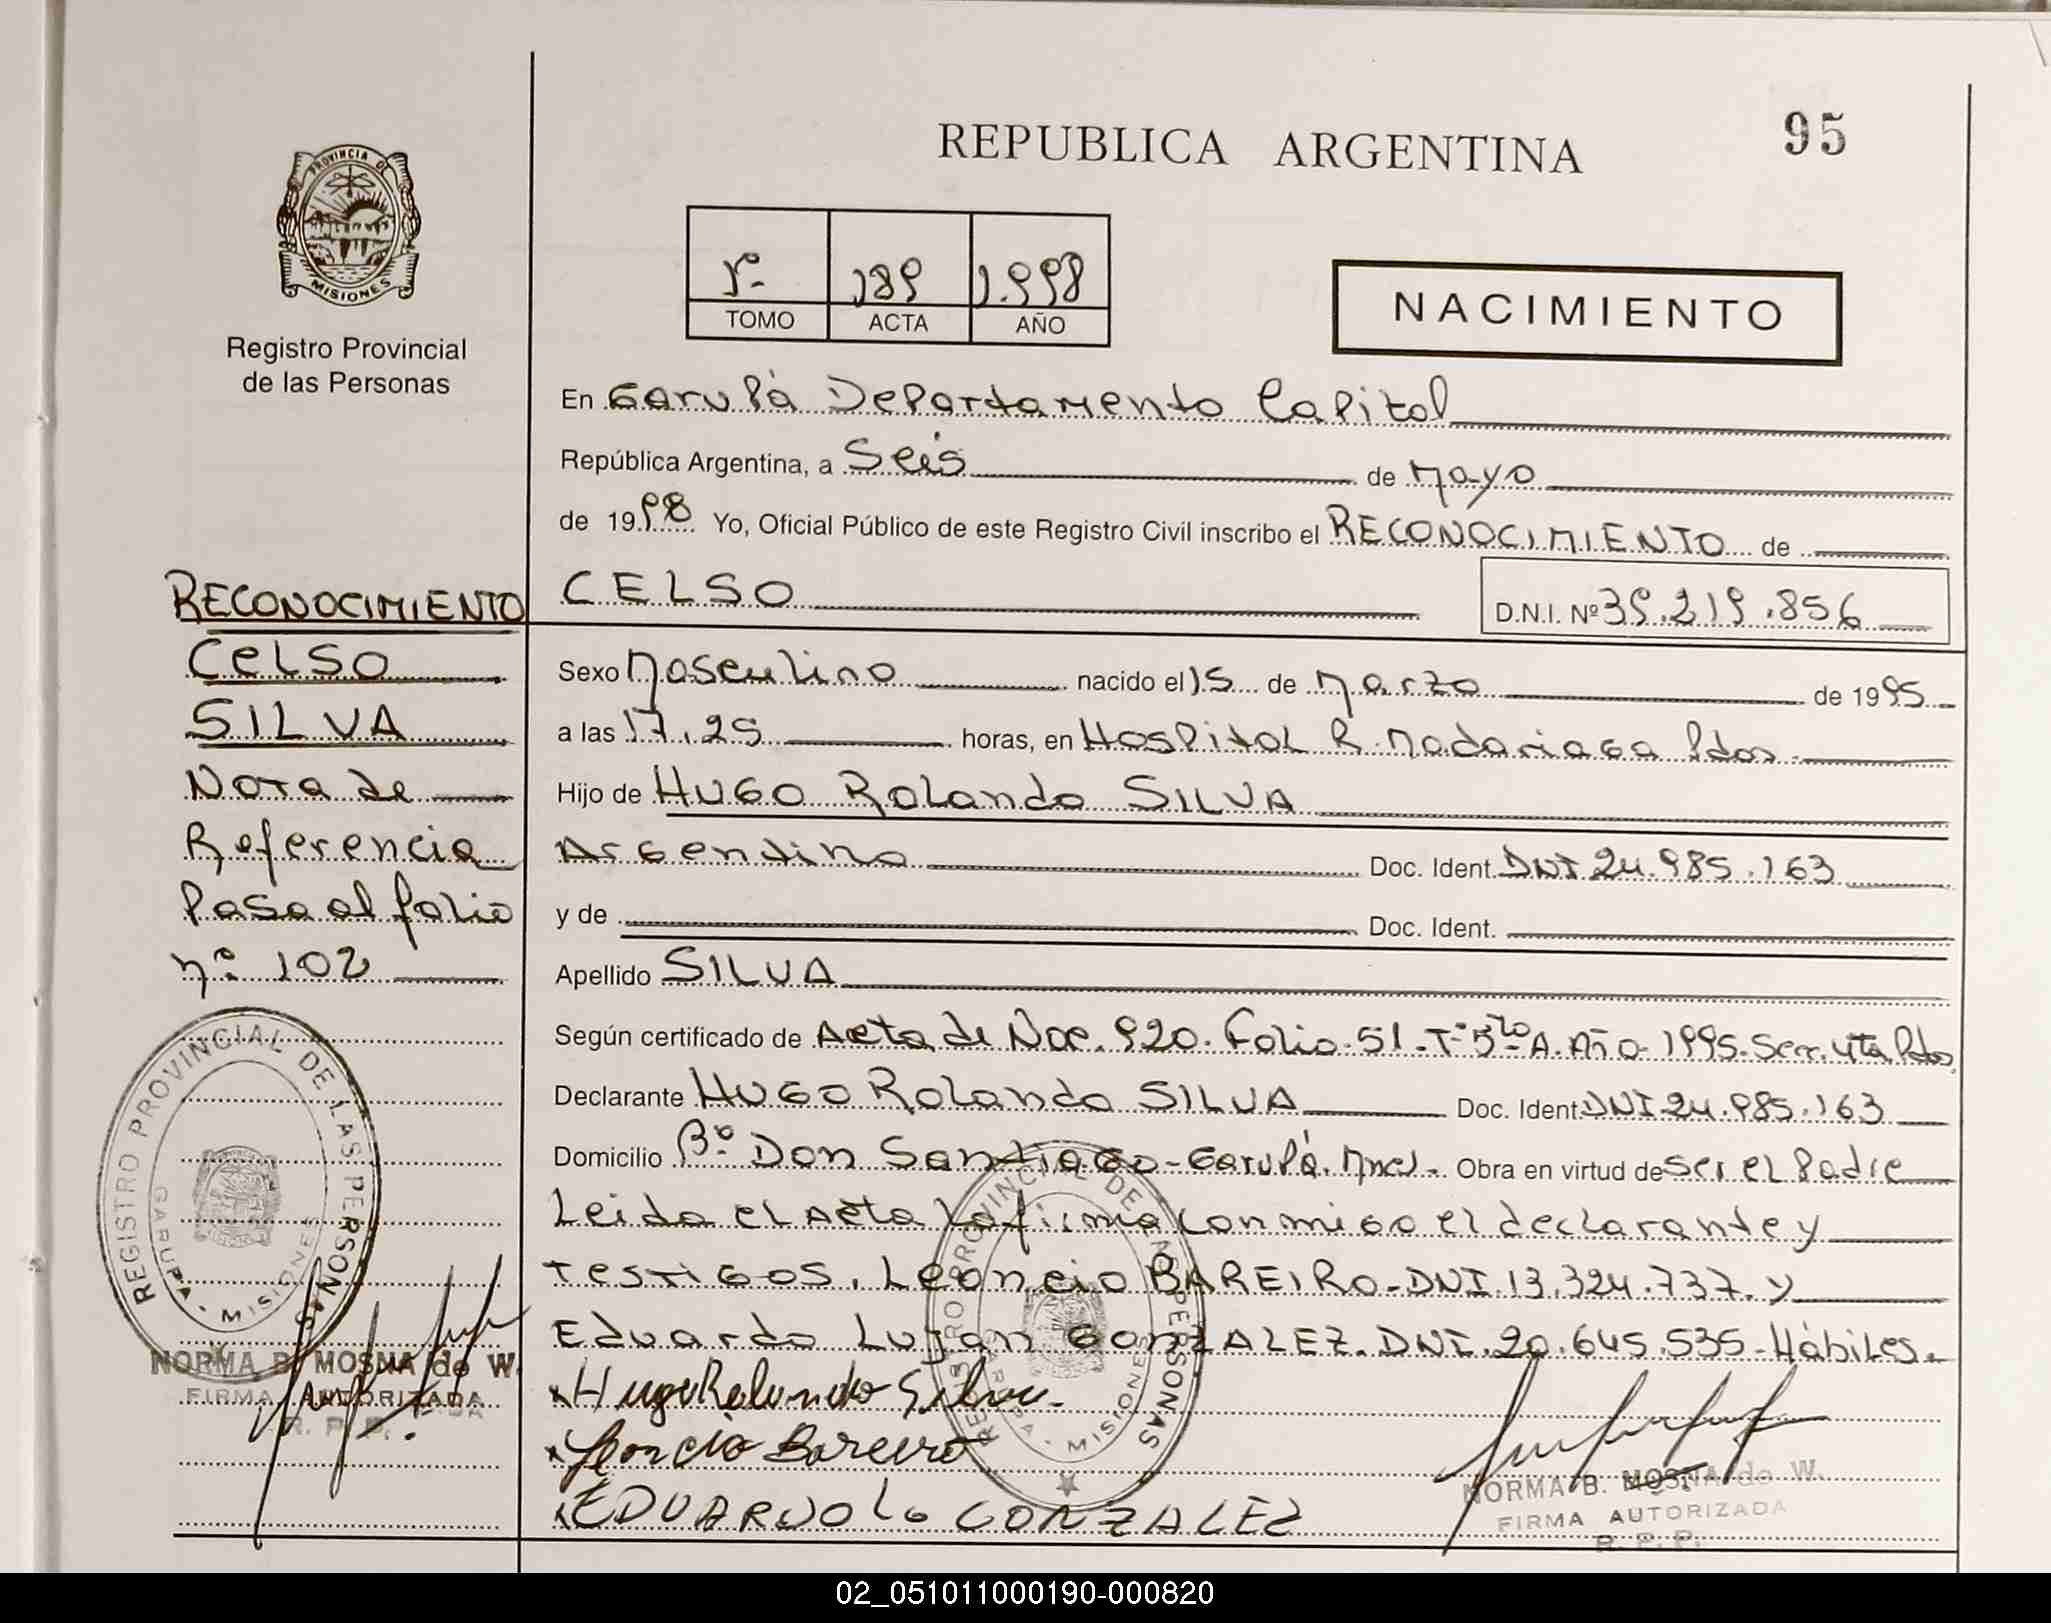 95
REPUBLICA ARGENTINA
PROVINCIA DE
MISIONES
Registro Provincial
de las Personas
1º- 189 1.998
TOMO ACTA AÑO
NACIMIENTO
En Garupá Departamento Capital
República Argentina, a Seis de Mayo
de 1998 Yo, Oficial Público de este Registro Civil inscribo el RECONOCIMIENTO de
CELSO D.N.I. Nº 39.219.856
RECONOCIMIENTO
CELSO
SILVA
Nota de
Referencia
Pasa al folio
nº 102
Sexo Masculino nacido el 15 de Marzo de 1995
a las 17,25 horas, en Hospital R. Madariaga Pdas.
Hijo de HUGO Rolando SILVA
Argentino Doc. Ident. DNI 24.985.163
y de Doc. Ident.
Apellido SILVA
Según certificado de Acta de Nac. 920. Folio-51-Tº 5to A. Año-1995-Secc. 4ta Pdas
Declarante HUGO Rolando SILVA Doc. Ident. DNI 24.985.163
Domicilio Bº Don Santiago-Garupá. Mnes. Obra en virtud de ser el Padre
Leida el Acta la firma conmigo el declarante y
testigos, Leoncio BAREIRO-DNI.13.324.737. y
Eduardo Lujan GONZALEZ. DNI.20.645.535-Hábiles.
Hugo Rolando Silva.
Leoncio Bareiro
EDUARDO L. GONZALEZ
REGISTRO PROVINCIAL DE LAS PERSONAS
GARUPA - MISIONES
NORMA B. MOSNA de W.
FIRMA AUTORIZADA
R. P. P.
REGISTRO PROVINCIAL DE LAS PERSONAS
GARUPA - MISIONES
NORMA B. MOSNA de W.
FIRMA AUTORIZADA
R. P. P.
02_051011000190-000820